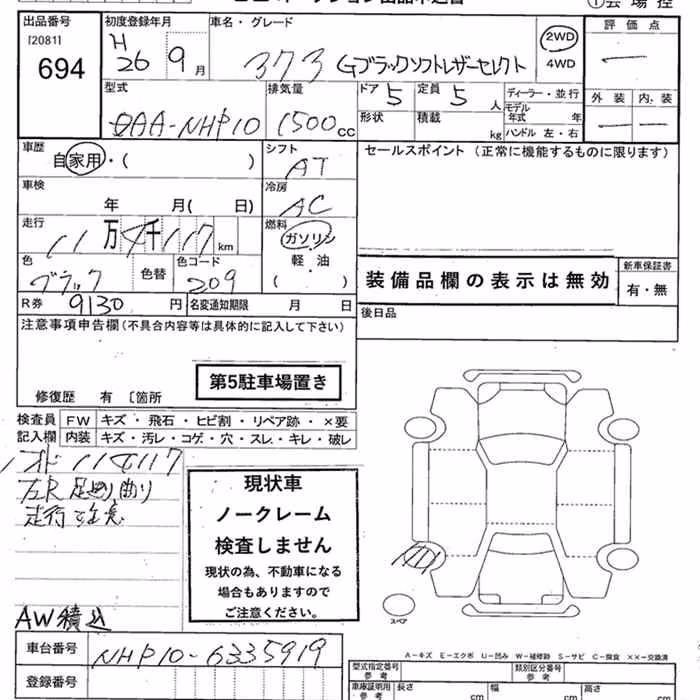 ①会場控
出品番号
[20811]
694
初度登録年月
H
26 9月
車名・グレード
373 Gブラックソフトレザーセレクト
2WD
4WD
評価点
一
外装 内装
一 一
型式
DAA-NHP10
排気量
1500cc
ドア 5
定員 5人
形状
積載 kg
ディーラー・並行
モデル年式 年
ハンドル 左・右
車歴
自家用・( )
シフト
AT
セールスポイント (正常に機能するものに限ります)
車検
年 月( 日)
冷房
AC
走行
11万4千117km
燃料
ガソリン
軽・油
( )
色
ブラック
色替
色コード
209
装備品欄の表示は無効
新車保証書
有・無
R券 9130円
名変通知期限 月 日
後日品
注意事項申告欄(不具合内容等は具体的に記入して下さい)
第5駐車場置き
修復歴 有 [箇所
検査員記入欄
FW キズ・飛石・ヒビ割・リペア跡・×要
内装 キズ・汚レ・コゲ・穴・スレ・キレ・破レ
114117
左R足廻り曲り
走行注意
AW積込
現状車
ノークレーム
検査しません
現状の為、不動車になる
場合もありますので
ご注意ください。
スペア
A-キズ E-エクボ U-凹み W-補修跡 S-サビ C-腐食 ××-交換済
車台番号 NHP10-6335919
登録番号
型式指定番号
参考
類別区分番号
参考
車庫証明用
参考
長さ cm
幅 cm
高さ cm